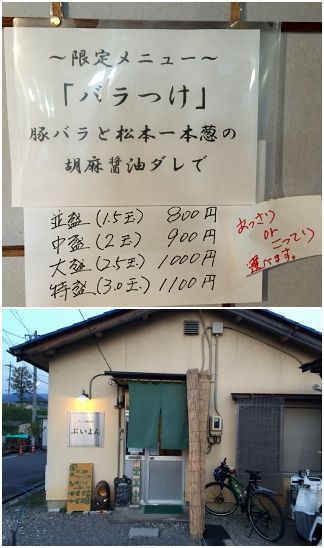 ～限定メニュー～
「バラつけ」
豚バラと松本一本葱の
胡麻醤油ダレで
並盛(1.5玉) 800円
中盛(2玉) 900円
大盛(2.5玉) 1000円
特盛(3.0玉) 1100円
あっさり
or
こってり
選べます。
ぶいよん